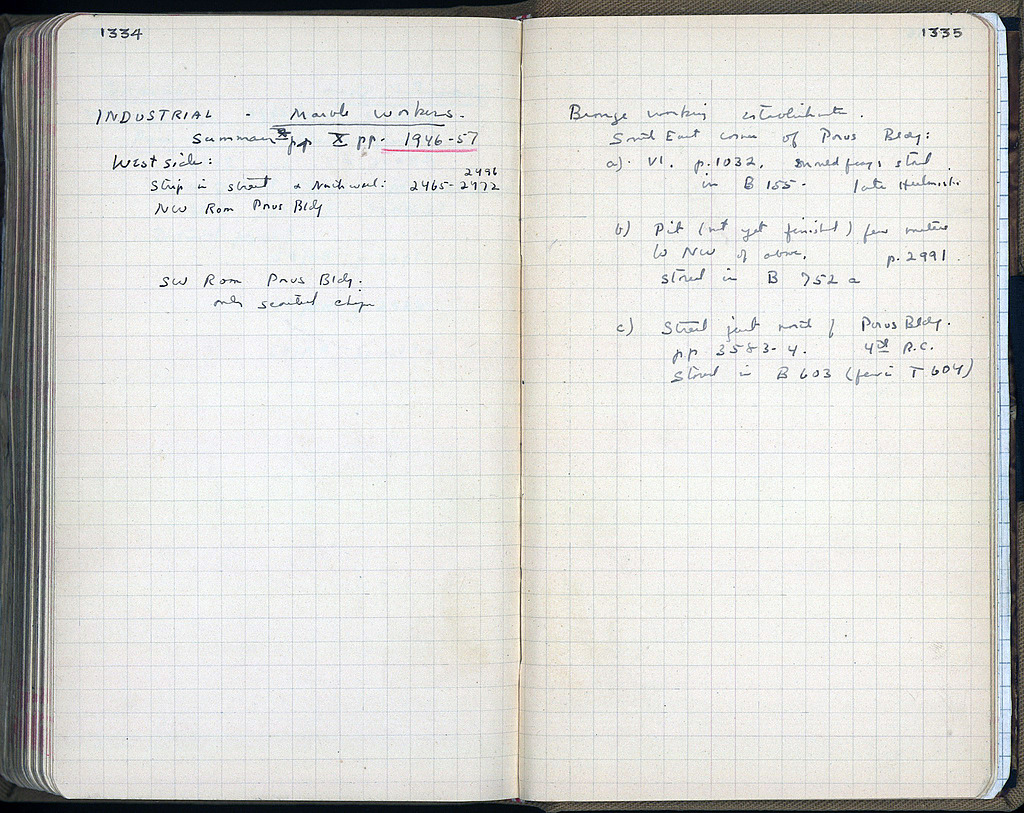 1334
INDUSTRIAL - Marble workers.
Summary pp X pp. 1946-57
West side:
2996
Strip in street & North wall: 2465-2972
NW Rom Poros Bldg
SW Rom Poros Bldg:
only scattered chips
1335
Bronze working establishments.
South East corner of Poros Bldg:
a). VI. p.1032. stored
in B 155 - late Hellenistic
b) Pit (not yet finished) few meters
to NW of above. p. 2991.
stored in B 752 a
c) Street just north of Poros Bldg.
pp 3583-4. 4th B.C.
Stored in B 603 (few in T 604)